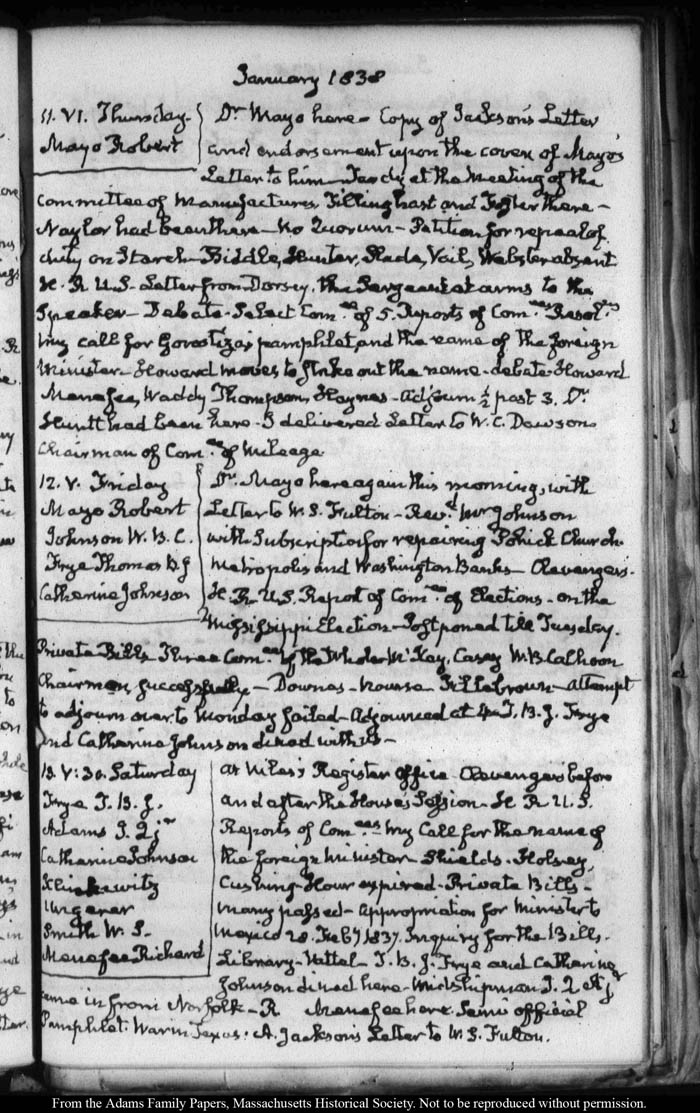 January 1838
11. VI. Thursday.
Mayo Robert
Dr. Mayo here - Copy of Jackson's Letter
and endorsement upon the cover of Mayo's
Letter to him - Tardy at the Meeting of the
Committee of Manufactures, Tillinghast and Foster there -
Naylor had been there - No Quorum - Petition for repeal of
duty on Starch - Biddle, Hunter, Slade, Vail, Webster absent
H. R. U.S. Letter from Dorsey, the Sergeant at arms to the
Speaker - Debate. Select Comee. of 5. Reports of Comees. Resolns.
my call for Gorostiza's pamphlet, and the name of the foreign
Minister - Howard moves to strike out the name - debate. Howard
Menefee, Waddy Thompson, Haynes - Adjourn ½ past 3. Dr.
Huntt had been here. I delivered Letter to W. C. Dawson
Chairman of Comee. of Mileage
12. V. Friday
Mayo Robert
Johnson W. B. C.
Frye Thomas B. J
Catherine Johnson
Dr. Mayo here again this morning, with
Letter to W. S. Fulton - Revd. Mr Johnson
with Subscription for repairing Pohick Church.
Metropolis and Washington Banks - Clevengers.
H. R. U.S. Report of Comee. of Elections - on the
Mississippi Election - Postponed till Tuesday.
Private Bills. Three Comees. of the Whole McKay, Casey W. B Calhoon
Chairmen successively - Downes - nourse Fillebrown - Attempt
to adjourn over to Monday failed - Adjourned at 4. T. B. J. Frye
and Catherine Johnson dined with us -
13. V: 30. Saturday
Frye T. B. J.
Adams J. Q jr
Catherine Johnson
Ungerer
Smith W. S.
Menefee Richard
At Niles's Register Office - Clevengers before
and after the House's Session - H. R U. S.
Reports of Comees. my Call for the name of
the foreign Minister - Shields. Holsey,
Cushing - Hour expired - Private Bills -
many passed - Appropriation for Minister to
Mexico 28. Feby 1837. Inquiry for the Bills.
Library - Vattel - T. B. J. Frye and Catherine
Johnson dined here - Midshipman J. Q A jr
came in from Norfolk - R Menefee here. Semi official
Pamphlet. Texas. A. Jackson's Letter to W. S. Fulton.
From the Adams Family Papers, Massachusetts Historical Society. Not to be reproduced without permission.